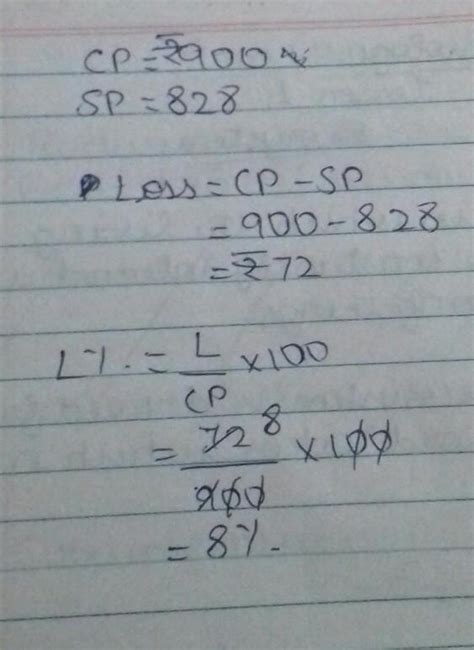 CP = ₹900
SP = 828
Loss = CP - SP
= 900 - 828
= ₹72
L%. = L/CP × 100
= 72 8/900 × 100
= 8%.